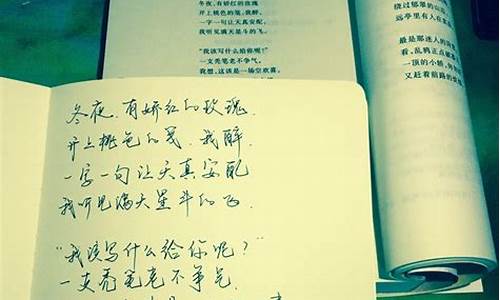 冬夜,有娇红的玫瑰
开上桃色的笺,我醉,
一字一句让天真安配,
我听见满天星斗的飞。
“我该写什么给你呢?”
一支秃笔老不争气,
我想,这该是一场空欢喜,
绕过郁郁的山
远亭里有人在
最是那迷人的
看,乱鸦正点破
一顶的小轿,
又赶着前路的
冬夜,有娇红的玫瑰,
开上桃色的笺,我醉,
一字一句让天真安配
我听见满天星斗的飞.
“我该写什么给你呢?”
一支秃笔老不争气.